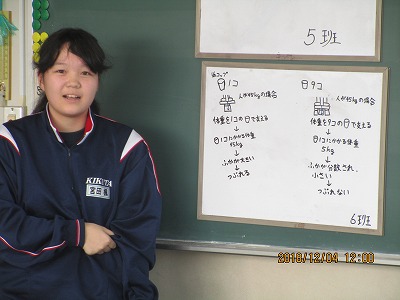 5班
紙コップ
1コ
人が45kgの場合
体重を1コの日で支える
↓
日1コにかかる体重
45kg
↓
ふかが大きい
↓
つぶれる
日9コ
人が45kgの場合
体重を9コの日で支える
↓
日1コにかかる体重
5kg
↓
ふかが分散され、
小さい
↓
つぶれない
6班
KIKUTA
2018/12/04 12:00